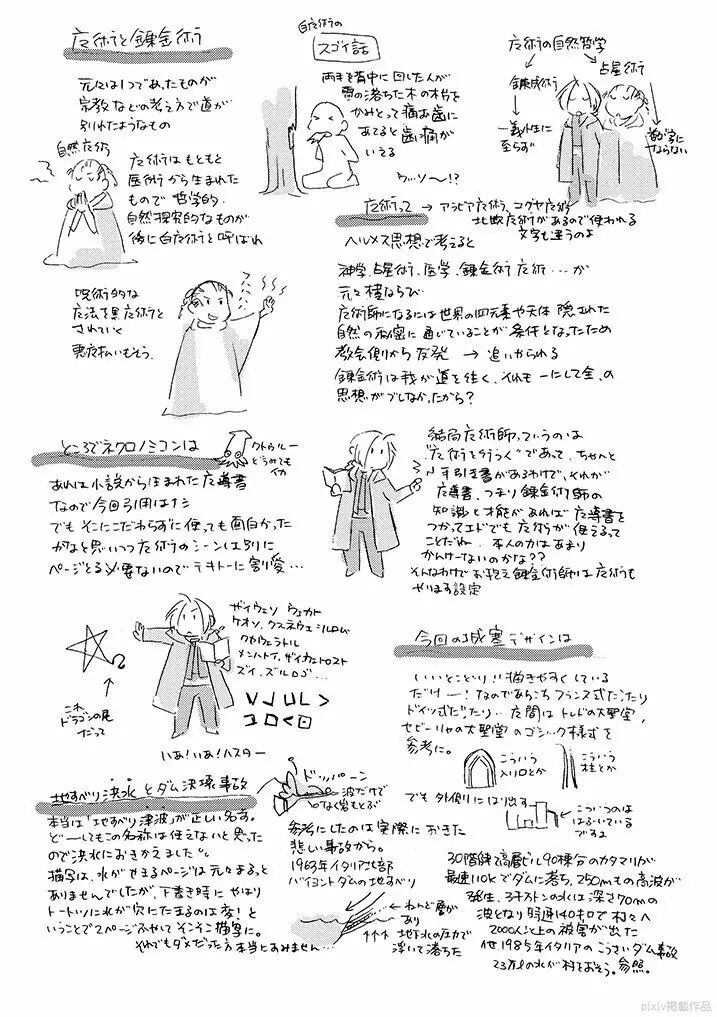 魔術と錬金術
元々は1つであったものが
宗教などの考え方で道が
別れたようなもの
自然魔術
魔術はもともと
医術から生まれた
もので哲学的
自然探究的なものが
後に白魔術と呼ばれ
呪術的な
魔法を黒魔術と
されていく
悪魔払いもそう。
白魔術の
スゴイ話
両手を背中に回した人が
雷の落ちた木の木片を
かみとって痛む歯に
あてると歯の痛みが
いえる
ウッソ〜!?
魔術の自然哲学
錬成術
占星術
一義性に
至らず
魔術って → アラビア魔術、ユダヤ魔術
北欧魔術があるので使われる
文字も違うのよ
ヘルメス思想で考えると
神学、占星術、医学、錬金術 魔術…が
元々横ならび
魔術師になるには世界の四元素や天体 隠された
自然の秘密に通じていることが条件となったため
教会側から反発 → 追いやられる
錬金術は我が道を往く、それも一にして全、の
思想がブレなかったから?
ところでネクロノミコンは
クトゥルー
どうみても
イカ
あれは小説から生まれた魔導書
なので今回引用はナシ
でもそこにこだわらずに使っても面白かった
かなと思いつつ魔術のシーンは別に
ページとる必要ないのでテキトーに割愛…
結局魔術師っていうのは
"魔術を行う"であって、ちゃんと
手引き書があるわけで、それが
魔導書、つまり錬金術師の
知識と才能があれば魔導書を
つかってエドでも魔術が使えるって
ことだねー 本人の力はあまり
かんけーないのかな??
そんなわけでお抱え錬金術師は魔術も
やります設定
これ
ドラゴンの尾
だって
ザイウェソ ウェカト
ケオソ、クスネウェ=ルロム
クセウェラトル
メンハトイ、ザイウェトロスト
ズイ、ズルロゴ…
いあ!いあ!ハスター
今回の城塞デザインは
いいとこどり!!描きやすくしている
だけー!なのであちこちフランス式だったり
ドイツ式だったり… 広間はトレドの大聖堂、
セビーリャの大聖堂のゴシック様式を
参考に。
こういう
入り口とか
こういう
柱とか
でも外側にはり出す
こういうのは
はぶいている
ですよ
地すべり洪水とダム決壊事故
本当は「地すべり津波」が正しい名す。
どーしてもこの名称は使えないと思った
ので洪水におきかえました。
描写は、水がせまるページは元々まるっと
ありませんでしたが、下書き時にやはり
トートツに水が穴にたまるのは変!と
いうことで2ページふやしてそこそこ描写に。
それでもダメだった方本当にすみません…
ドッパーン
波だけで
なく岩もとぶ
参考にしたのは実際におきた
悲しい事故から。
1963年イタリア北部
バイヨントダムの地すべり
ねんど層が
あり
地下水の圧力で
浮いて落ちた
30階建て高層ビル90棟分のカタマリが
最速110kでダムに落ち、250mもの高波が
発生、3千万トンの水は深さ70mの
波となり時速140キロで村々へ
2000人以上の被害が出た
他1985年イタリアのこうさいダム事故
23万ℓの水が村をおそう。参照。
pixiv掲載作品